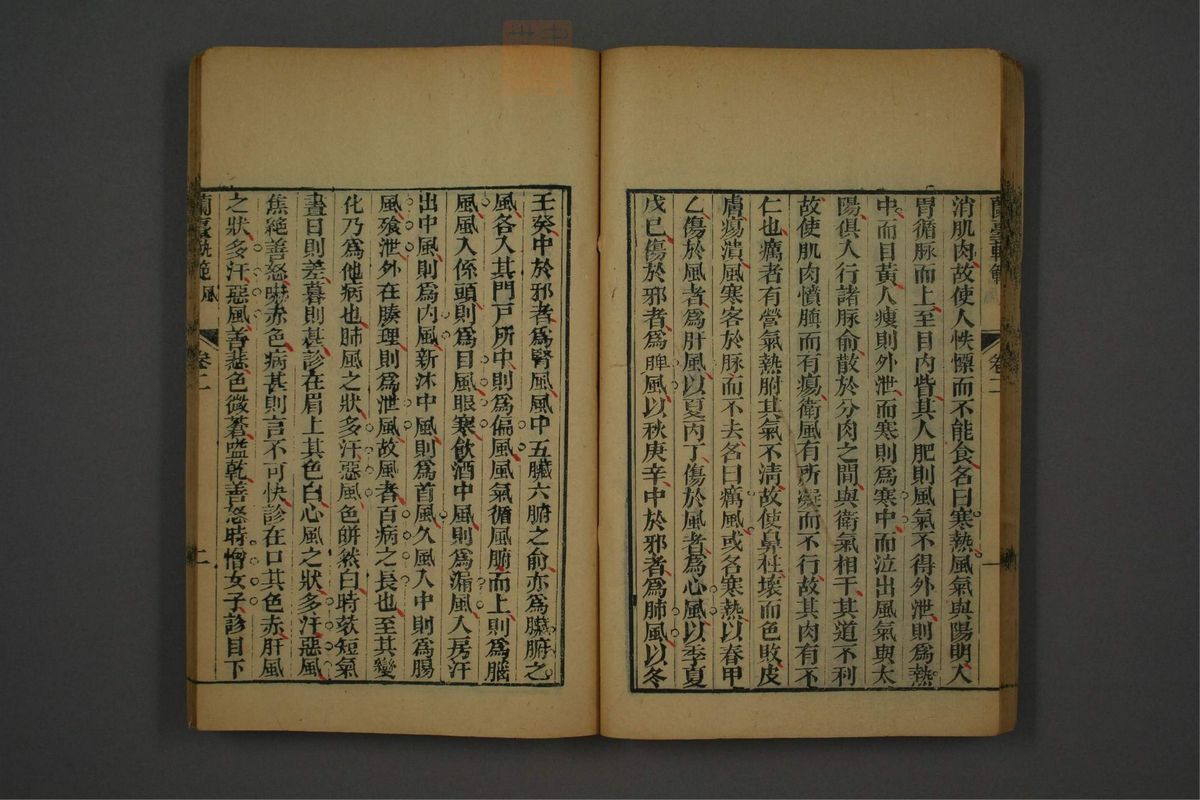 消肌肉故使人怢慄而不能食名曰寒熱風氣與陽明入
胃循脉而上至目內眥其人肥則風氣不得外泄則爲熱
中而目黃人瘦則外泄而寒則爲寒中而泣出風氣與太
陽俱入行諸脉俞散於分肉之間與衛氣相干其道不利
故使肌肉憤䐜而有瘍衛風有所凝而不行故其肉有不
仁也癘者有營氣熱胕其氣不淸故使鼻柱壞而色敗皮
膚瘍潰風寒客於脉而不去名曰癘風或名寒熱以春甲
乙傷於風者爲肝風以夏丙丁傷於風者爲心風以季夏
戊巳傷於邪者爲脾風以秋庚辛中於邪者爲肺風以冬
蘭臺軌範
卷二
一
壬癸中於邪者爲腎風風中五臟六腑之俞亦爲臟腑之
風各入其門戸所中則爲偏風風氣循風腑而上則爲腦
風風入係頭則爲目風眼寒飮酒中風則爲漏風入房汗
出中風則爲內風新沐中風則爲首風久風入中則爲腸
風飱泄外在腠理則爲泄風故風者百病之長也至其變
化乃爲他病也肺風之狀多汗惡風色皏然白時欬短氣
晝日則差暮則甚診在眉上其色白心風之狀多汗惡風
焦絕善怒嚇赤色病甚則言不可快診在口其色赤肝風
之狀多汗惡風善悲色微蒼嗌乾善怒時憎女子診目下
蘭臺軌範 風
卷二
二